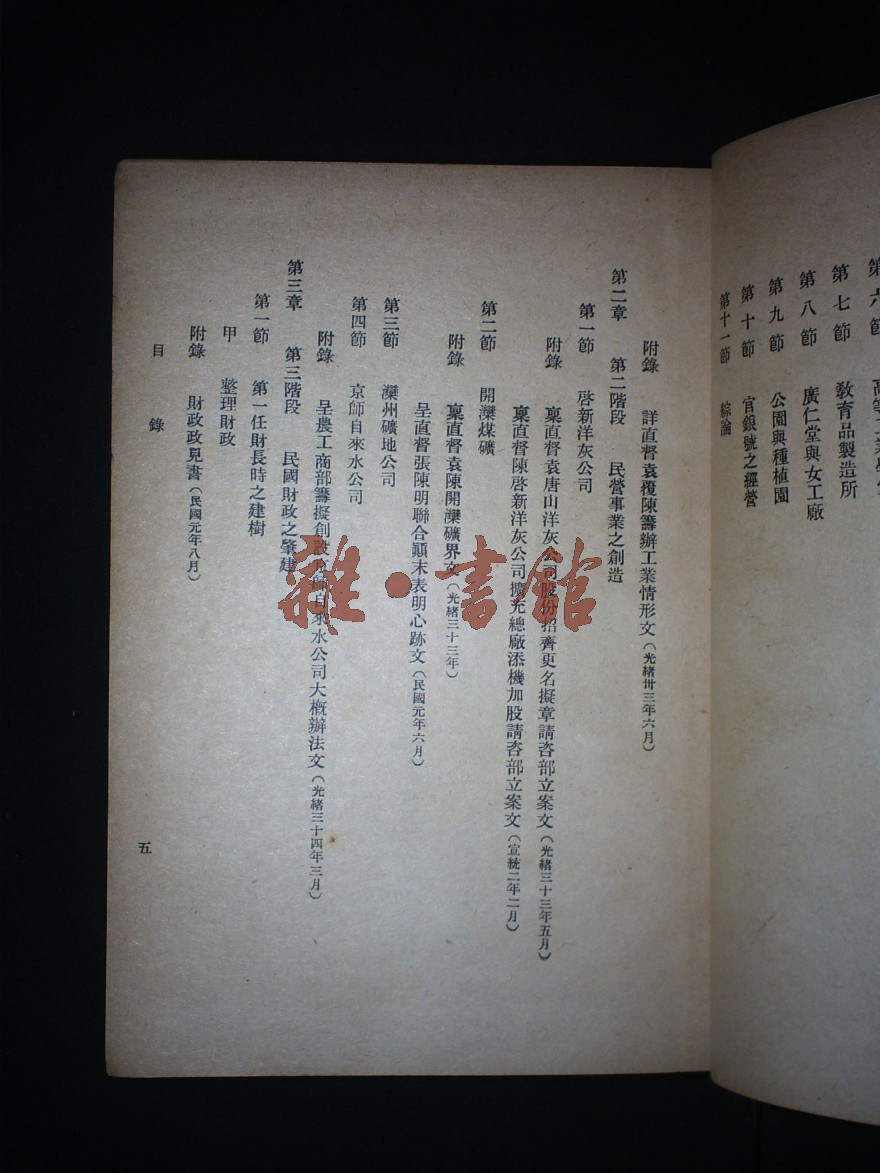 第六節
第七節　教育品製造所
第八節　廣仁堂與女工廠
第九節　公園與種植園
第十節　官銀號之經營
第十一節　綜論
附錄　詳直督袁覆陳籌辦工業情形文（光緒卅三年六月）
第二章　第二階段　民營事業之創造
第一節　啓新洋灰公司
附錄　稟直督袁唐山洋灰公司股份招齊更名擬章請咨部立案文（光緒三十三年五月）
稟直督陳啓新洋灰公司擴充總廠添機加股請咨部立案文（宣統二年二月）
第二節　開灤煤礦
附錄　稟直督袁陳開灤礦界文（光緒三十三年）
呈直督張陳明聯合顚末表明心跡文（民國元年六月）
第三節　灤州礦地公司
第四節　京師自來水公司
附錄　呈農工商部籌擬創設京師自來水公司大概辦法文（光緒三十四年三月）
第三章　第三階段　民國財政之肇建
第一節　第一任財長時之建樹
甲　整理財政
附錄　財政政見書（民國元年八月）
目錄
五
雜·書館